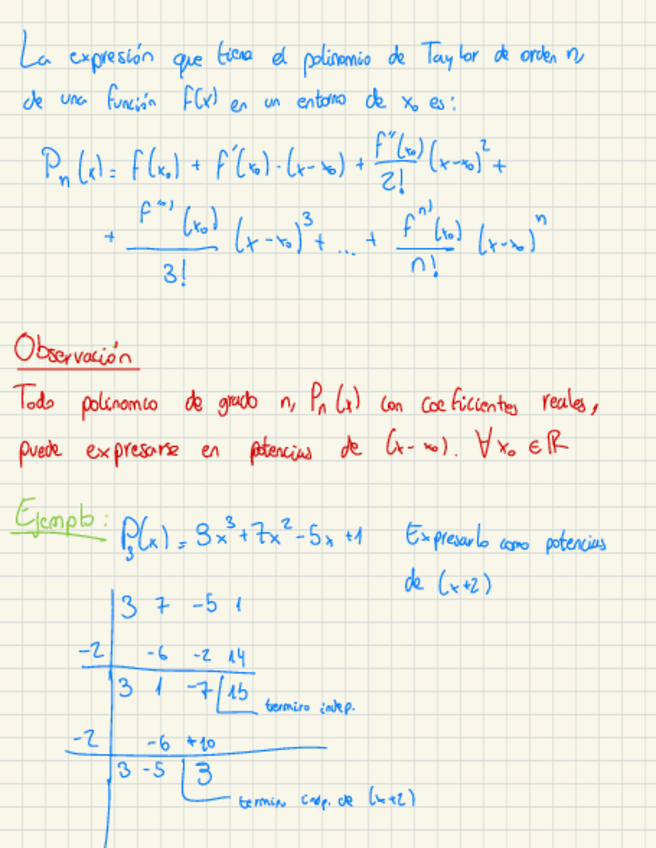 La expresión que tiene el polinomio de Taylor de orden n
de una función f(x) en un entorno de x₀ es:
Pₙ(x) = f(x₀) + f'(x₀)·(x-x₀) + f''(x₀)/2! (x-x₀)² +
+ f'''(x₀)/3! (x-x₀)³ + ... + fⁿ⁾(x₀)/n! (x-x₀)ⁿ
Observación
Todo polinomio de grado n, Pₙ(x) con coeficientes reales,
puede expresarse en potencias de (x-x₀). ∀x₀ ∈ ℝ
Ejemplo: P₃(x) = 3x³+7x²-5x+1 Expresarlo como potencias
de (x+2)
3 7 -5 1
-2 -6 -2 14
3 1 -7 15
termino indep.
-2 -6 +10
3 -5 3
termin indp. de (x+2)